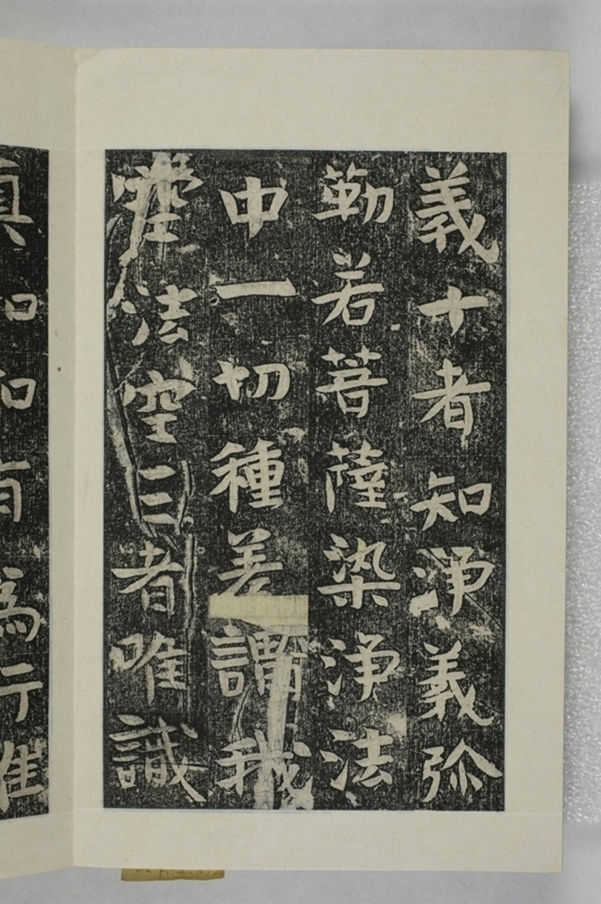 義十者知淨義弥
勒若菩薩染淨法
中一切種差謂我
空法空三者唯識
真如
有為行唯